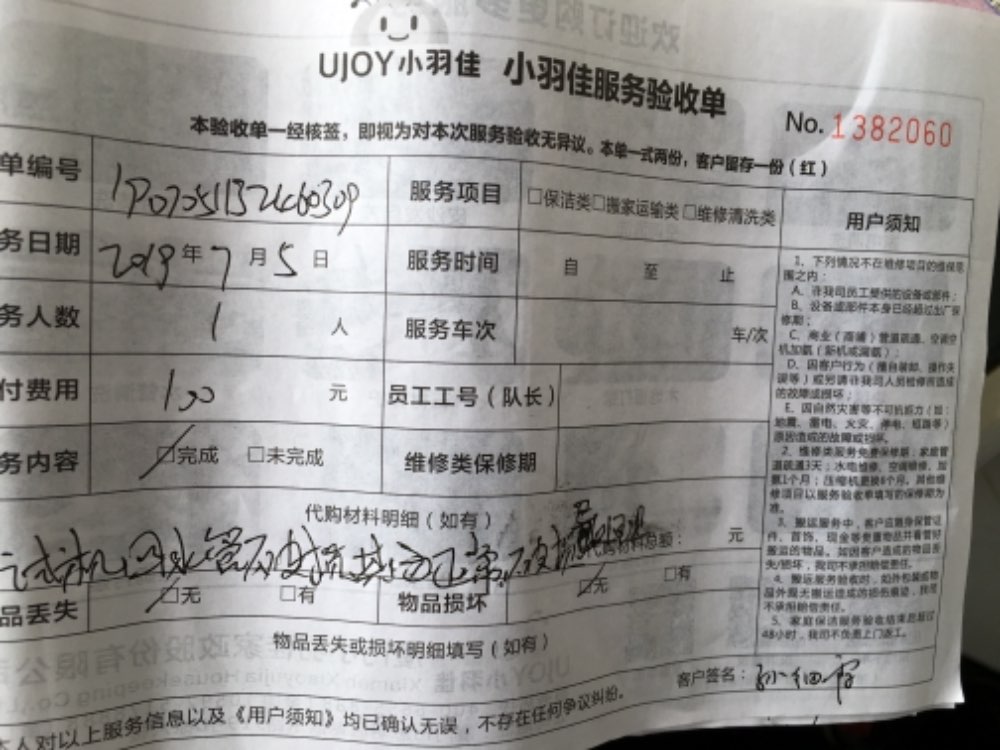 UJOY小羽佳 小羽佳服务验收单
No. 1382060
本验收单一经核签，即视为对本次服务验收无异议。本单一式两份，客户留存一份（红）
单编号 服务项目 □保洁类□搬家运输类 □维修清洗类 用户须知
务日期 2019年7月5日 服务时间 自 至 止
务人数 1 人 服务车次 车/次
付费用 100 元 员工工号（队长）
务内容 □完成 □未完成 维修类保修期
代购材料明细（如有）
代购材料总额： 元
品丢失 □无 □有 物品损坏 □无 □有
物品丢失或损坏明细填写（如有）
本人对以上服务信息以及《用户须知》均已确认无误，不存在任何争议纠纷。
1、下列情况不在维修项目的维保范
围之内：
A、非我司员工提供的设备或部件；
B、设备或部件本身已经超过出厂保
修期；
C、商业（商铺）管道疏通、空调空
机加氨（新机或漏氨）；
D、因客户行为（擅自装卸、操作失
误等）或另请非我司人员维修而造成
的故障或损坏；
E、因自然灾害等不可机拒力（如：
地震、雷电、火灾、停电、短路等）
原因造成的故障或损坏。
2、维修类服务免费保修期：家庭管
道疏通3天；水电维修、空调维修、加
氨1个月；压缩机更换6个月。其他维
修项目以服务验收单填写的保修期为
准。
3、搬运服务中，客户应随身保管证
件、首饰、现金等贵重物品并看管好
搬运的物品。如因客户造成的物品丢
失/损坏，我司不承担赔偿责任。
4、搬运服务验收时，如外包装或物
品外观无搬运造成的损伤痕迹，我司
不承担赔偿责任。
5、家庭保洁服务验收结束后超过
48小时，我司不负责上门返工。
客户签名：